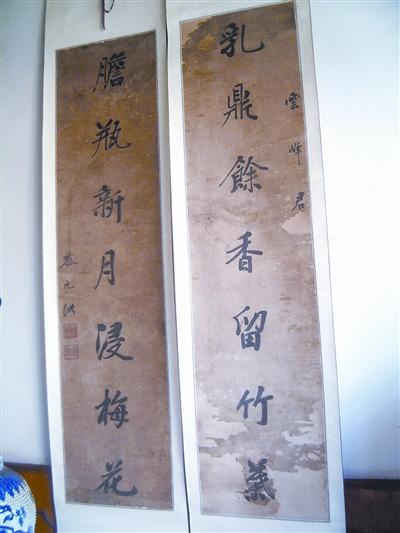 雲峰君
乳鼎餘香留竹葉
膽瓶新月浸梅花
黎元洪